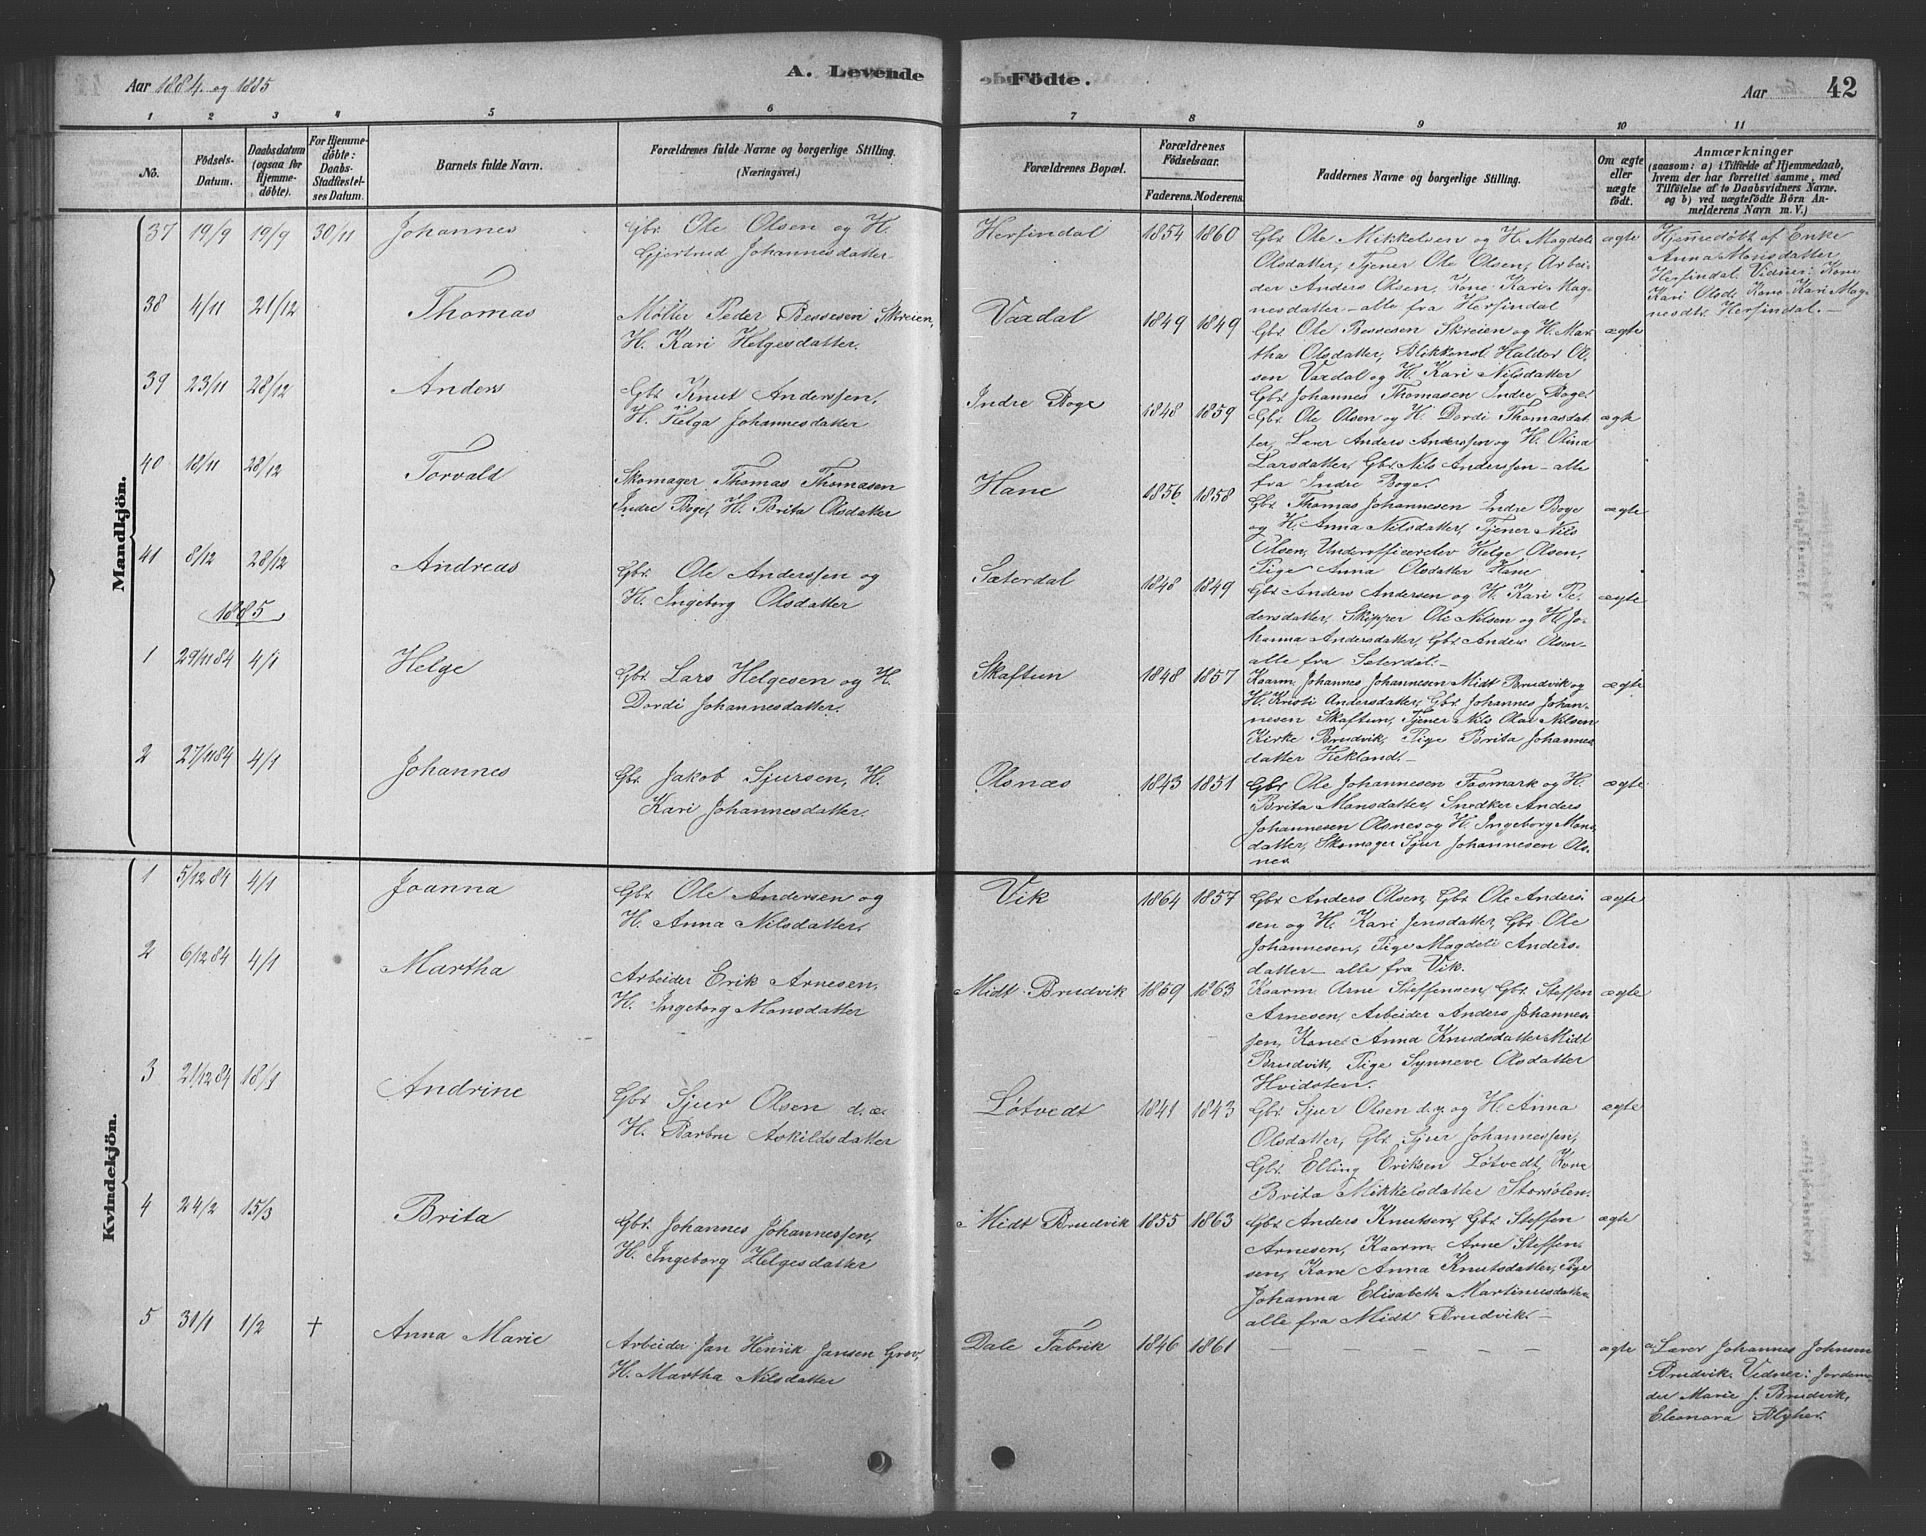 Aar 1884 og 1885
A. Levende Födte.
Aar 42
1 2 3 4 5 6 7 8 9 10 11
No.
Födsels-Datum.
Daabsdatum (ogsaa for Hjemme-döbte).
For Hjemme-döbte: Daabs-Stadfæstel-ses Datum.
Barnets fulde Navn.
Forældrenes fulde Navne og borgerlige Stilling.
(Næringsvei.)
Forældrenes Bopæl.
Forældrenes Födselsaar.
Faderens. Moderens.
Faddernes Navne og borgerlige Stilling.
Om ægte eller uægte födt.
Anmærkninger
(saasom: a) i Tilfælde af Hjemmedaab,
hvem der har forrettet samme, med
Tilföielse af to Daabsvidners Navne.
og b) ved uægtefödte Börn An-
melderens Navn m. V.)
Mandkjön.
37 19/9 19/9 30/11 Johannes
Gbr. Ole Olsen og H.
Gjertrud Johannesdatter
Herfindal 1854 1860
Gbr. Ole Mikkelsen og H. Magdeli
Olsdatter, Tjener Ole Olsen, Arbei-
der Anders Olsen, Kone Kari Mag-
nesdatter – alle fra Herfindal
ægte
Hjemmedøbt af Enke
Anna Monsdatter
Herfindal. Vidner: Kone
Kari Olsd. Kone Kari Mag-
nesdtr. Herfindal. –
38 4/11 21/12 Thomas
Møller Peder Bessesen Skreien,
H. Kari Helgesdatter.
Vaxdal 1849 1849
Gbr. Ole Bessesen Skreien og H. Mar-
tha Olsdatter, Blikkensl. Haldor Ol-
sen Vaxdal og H. Kari Nilsdatter
Gbr. Johannes Thomasen Indre Boge.
ægte
39 23/11 28/12 Anders
Gbr. Knut Anderssen,
H. Helga Johannesdatter
Indre Boge 1848 1859
Gbr. Ole Olsen og H. Dordi Thomasdat-
ter, Lærer Anders Anderssen og H. Olina
Larsdatter, Gbr. Nils Anderssen – alle
fra Indre Boge.
ægte
40 18/11 28/12 Torvald
Skomager Thomas Thomasen
Indre Boge, H. Brita Olsdatter
Hane 1856 1858
Gbr. Thomas Johannesen Indre Boge
og H. Anna Nilsdatter, Tjener Nils
Olsen, Underofficerelev Helge Olsen,
Pige Anna Olsdatter Hane
ægte
41 8/12 28/12 Andreas
Gbr. Ole Anderssen og
H. Ingeborg Olsdatter
Sæterdal 1848 1849
Gbr. Anders Andersen og H. Kari Pe-
dersdatter, Skipper Ole Nilsen og H. Jo-
hanna Andersdatter, Gbr. Anders Olsen –
alle fra Seterdal. –
ægte
1885
1 29/11 84 4/1 Helge
Gbr. Lars Helgesen og H.
Dordi Johannesdatter.
Skaftun 1848 1857
Kaarm. Johannes Johannesen Midt Brudvik og
H. Kristi Andersdatter, Gbr. Johannes Johan-
nesen Skaftun, Tjener Nils Olai Nilsen
Kirke Brudvik, Pige Brita Johannes-
datter Hekland. –
ægte
2 27/11 84 4/1 Johannes
Gbr. Jakob Sjursen, H.
Kari Johannesdatter.
Olsnæs 1843 1851
Gbr. Ole Johannesen Fosmark og H.
Brita Monsdatter, Snedker Anders
Johannesen Olsnes og H. Ingeborg Mons-
datter, Skomager Sjur Johannesen Ols-
nes
ægte
Kvindekjön.
1 5/12 84 4/1 Joanna
Gbr. Ole Andersen og
H. Anna Nilsdatter.
Vik 1864 1857
Gbr. Anders Olsen, Gbr. Ole Anders-
sen og H. Kari Jensdatter, Gbr. Ole
Johannesen, Pige Magdeli Anders-
datter – alle fra Vik.
ægte
2 6/12 84 4/1 Martha
Arbeider Erik Arnesen.
H. Ingeborg Monsdatter
Midt Brudvik 1859 1863
Kaarm. Arne Steffensen, Gbr. Steffen
Arnesen, Arbeider Anders Johannes-
sen, Kone Anna Knudsdatter Midt
Brudvik, Pige Synneve Olsdatter
Hvidsten.
ægte
3 21/12 84 18/1 Andrine
Gbr. Sjur Olsen d. æ.
H. Barbru Askildsdatter
Løtvedt 1841 1843
Gbr. Sjur Olsen d. y. og H. Anna
Olsdatter, Gbr. Sjur Johannessen,
Gbr. Elling Eriksen Løtvedt, Kone
Brita Mikkelsdatter Storsølen.
ægte
4 24/2 15/3 Brita
Gbr. Johannes Johannessen,
H. Ingeborg Helgesdatter
Midt Brudvik 1855 1863
Gbr. Anders Knutsen, Gbr. Steffen
Arnesen, Kaarm. Arne Steffen-
sen, Kone Anna Knutsdatter, Pige
Johanna Elisabeth Martinusdatter
alle fra Midt Brudvik. –
ægte
5 31/1 1/2 † Anna Marie
Arbeider Jan Henrik Jansen Grov,
H. Martha Nilsdatter
Dale Fabrik 1846 1861
– – – – –
ægte
a. Lærer Johannes Johnsen
Brudvik. Vidner: Jordemo-
der Marie J. Brudvik,
Eleonora